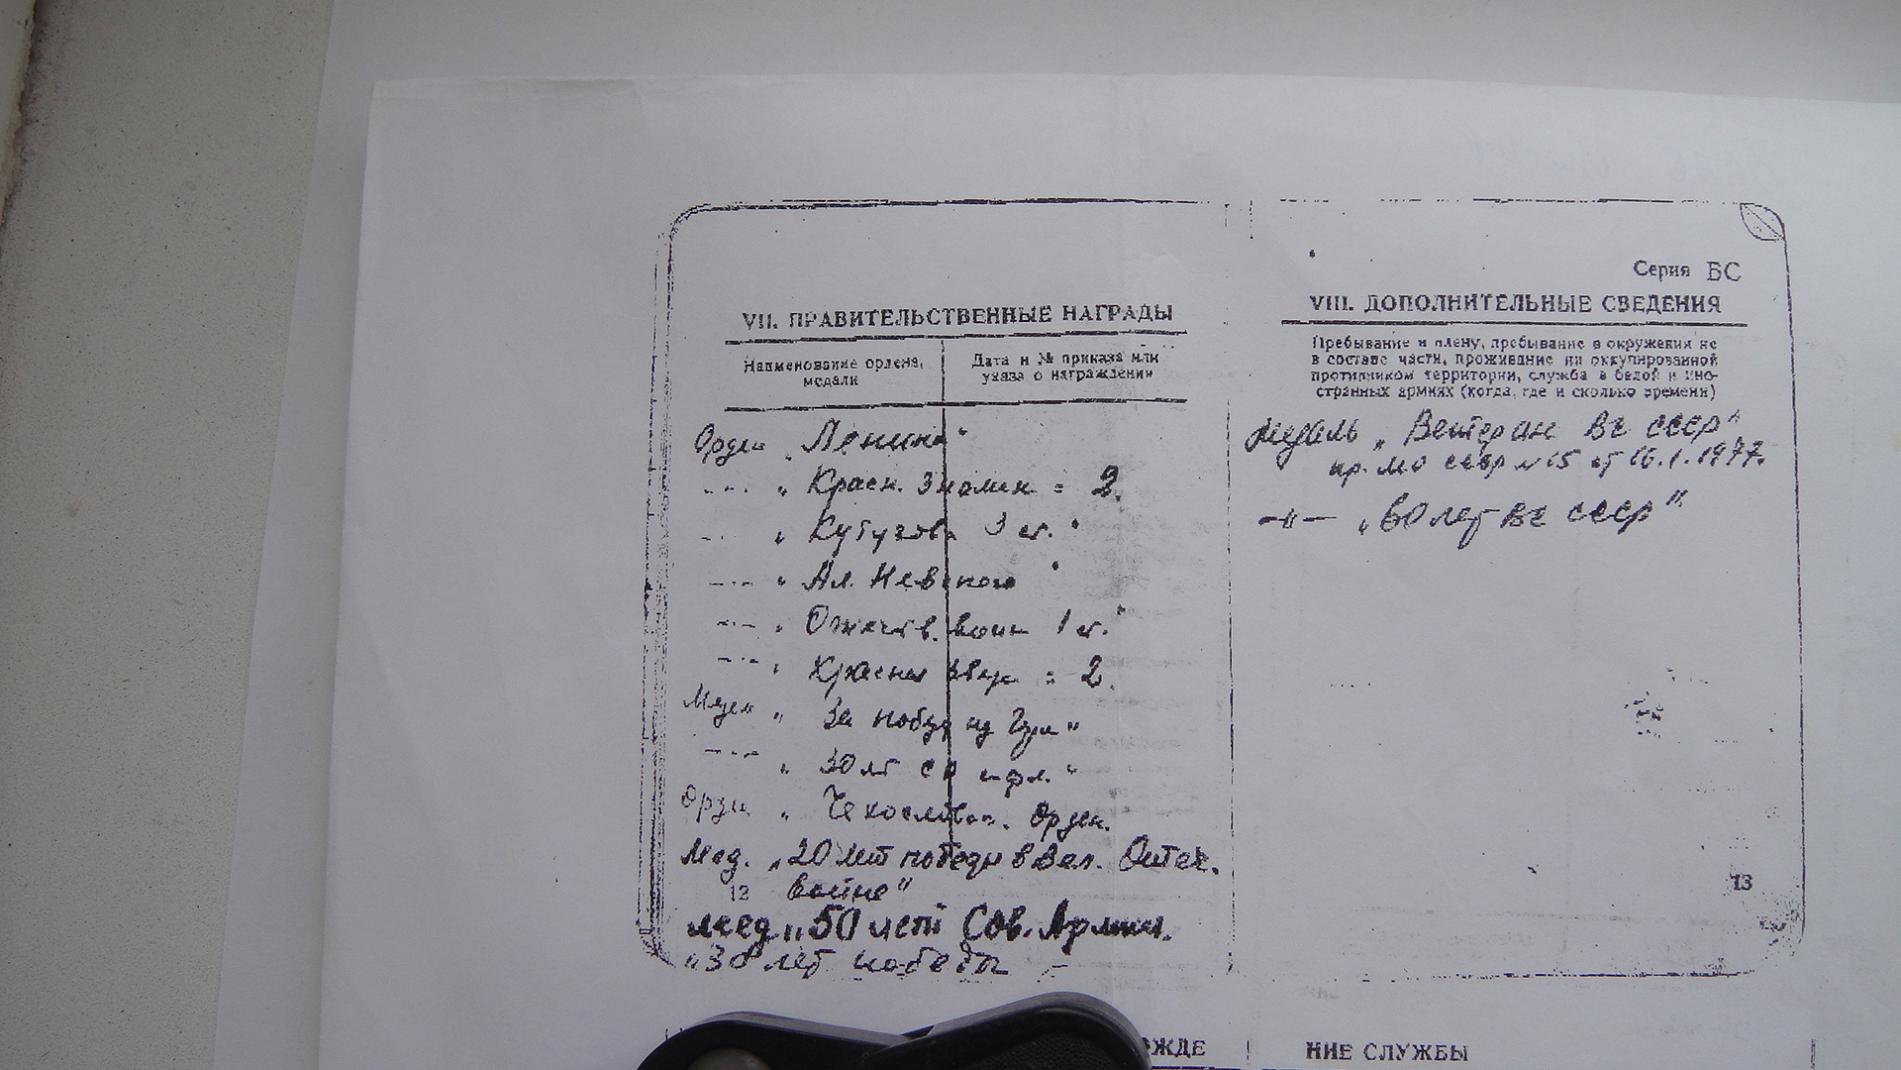 VII. ПРАВИТЕЛЬСТВЕННЫЕ НАГРАДЫ
Наименование ордена, медали
Дата и № приказа или указа о награждении
Орден „Ленина“
--- „ Красн. Знамен = 2.
--- „ Кутузова 3 ст. “
--- „ Ал. Невского “
--- „ Отечеств. войн 1 ст. “
--- „ Красная Звезд = 2.
„ За победу над Гер“
--- „ 30 лет СА и фл. “
Орден „ Чехословац. Орден.
Мед. „20 лет победы в Вел. Отеч.
12 войне“
мед „50 лет Сов. Армии.
„30 лет победы
Серия БС
VIII. ДОПОЛНИТЕЛЬНЫЕ СВЕДЕНИЯ
Пребывание в плену, пребывание в окружении не
в составе части, проживание на оккупированной
противником территории, служба в белой и ино-
странных армиях (когда, где и сколько времени)
Медаль „ Ветеран ВС СССР“
пр. МО СССР №15 от 16.1.1977.
—„— „60 лет ВС СССР“
13
ЖДЕ
НИЕ СЛУЖБЫ